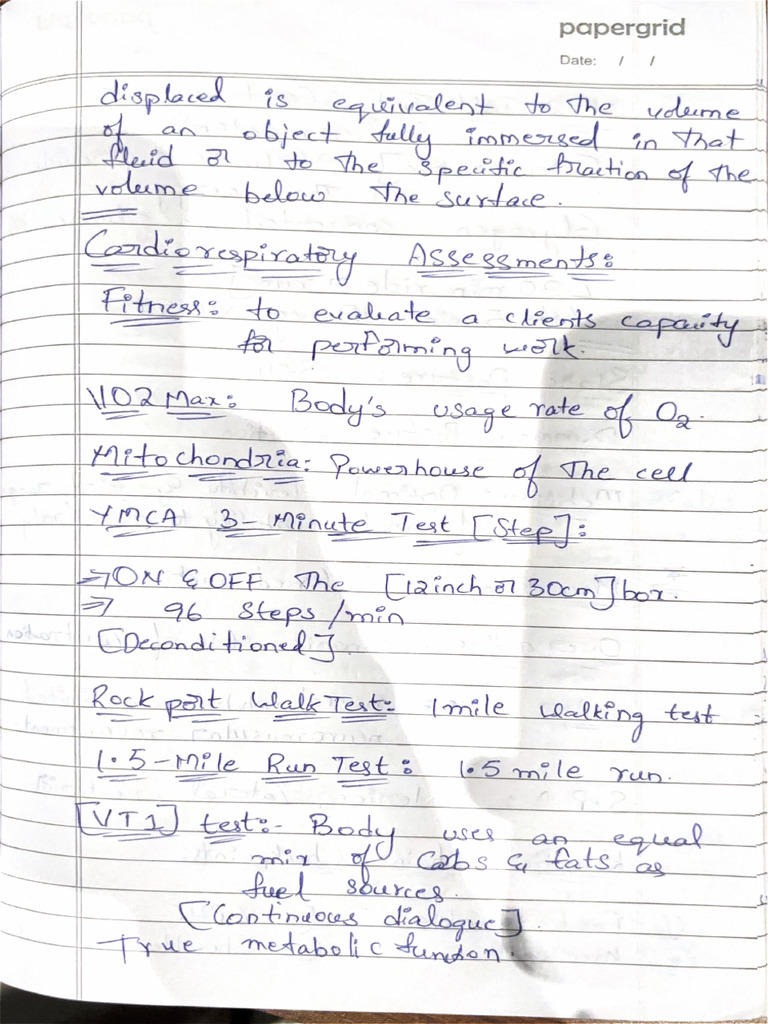 papergrid
Date: / /
displaced is equivalent to the volume
of an object fully immersed in that
fluid or to the specific fraction of the
volume below the surface.
Cardiorespiratory Assessments:
Fitness: to evaluate a clients capacity
for performing work.
VO2 Max: Body's usage rate of O2.
Mitochondria: Powerhouse of the cell
YMCA 3-Minute Test [Step]:
⇒ ON & OFF the [12inch or 30cm] box.
⇒ 96 steps/min
[Deconditioned]
Rock port Walk Test: 1 mile walking test
1.5-Mile Run Test: 1.5 mile run.
[VT1] test:- Body uses an equal
mix of Carbs & fats as
fuel sources.
[Continuous dialogue].
True metabolic function.